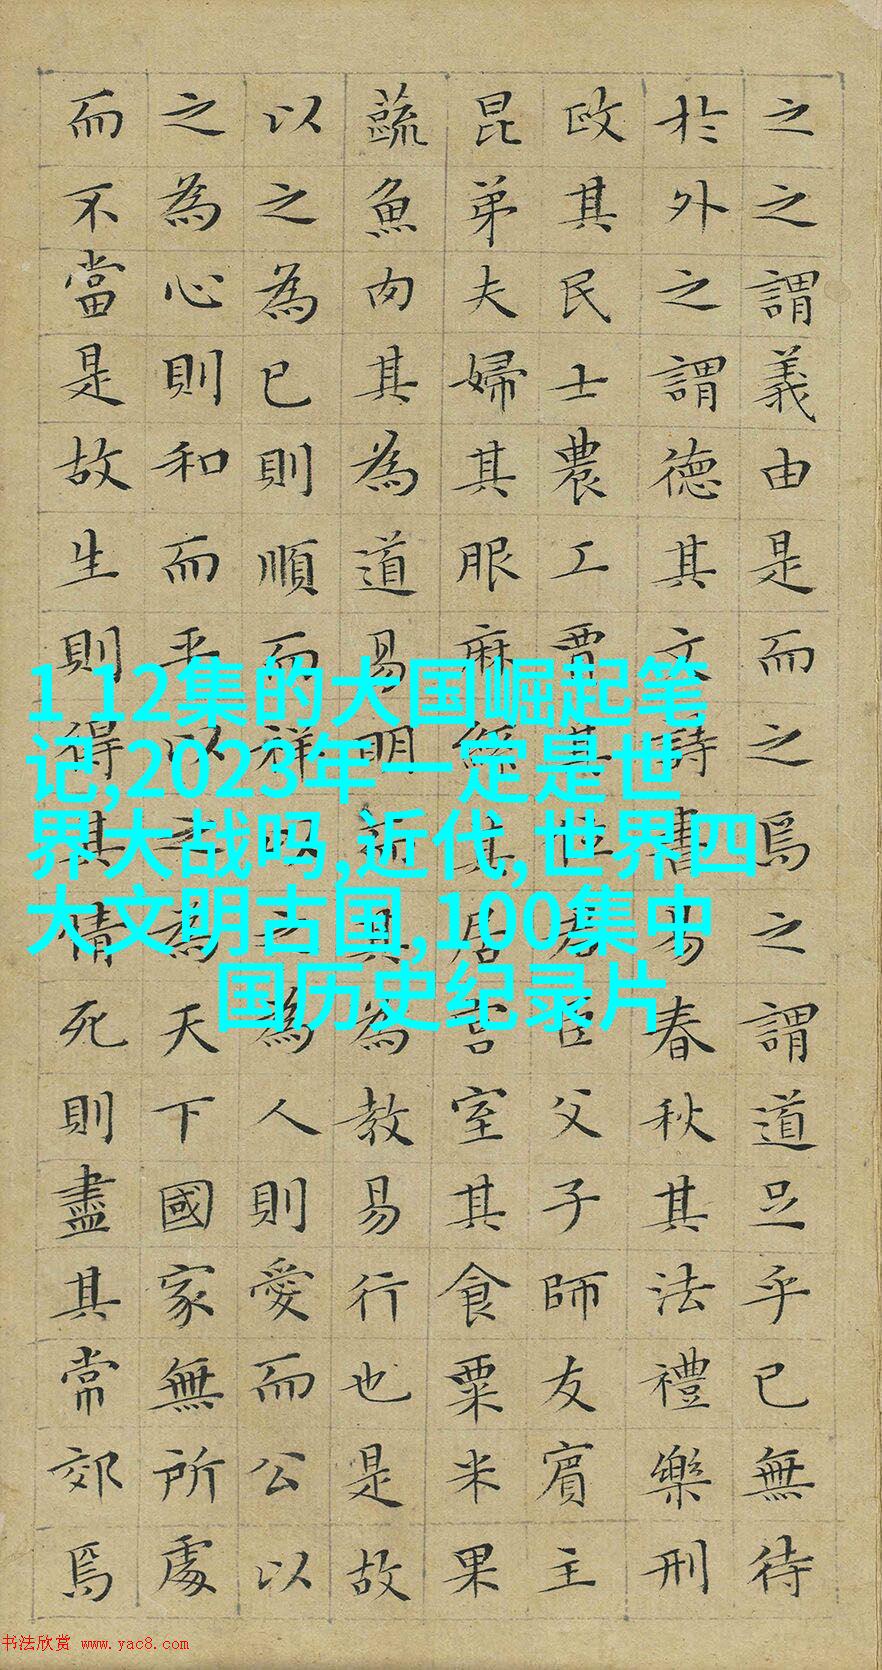 之之謂義由是而之焉之謂道足乎已無待
於外之謂德其文詩書易春秋其法禮樂刑
政其民士農工賈其位君臣父子師友賓主
昆弟夫婦其服麻絲其居宮室其食粟米果
蔬魚肉其為道易明而其為教易行也是故
以之為已則順而祥以之為人則愛而公以
之為心則和而平以之為天下國家無所處
而不當是故生則得其情死則盡其常郊焉
1 12集的大国崛起笔
记,2023年一定是世
界大战吗,近代,世界四
大文明古国,100集中
国历史纪录片
书法欣赏 www.yac8.com